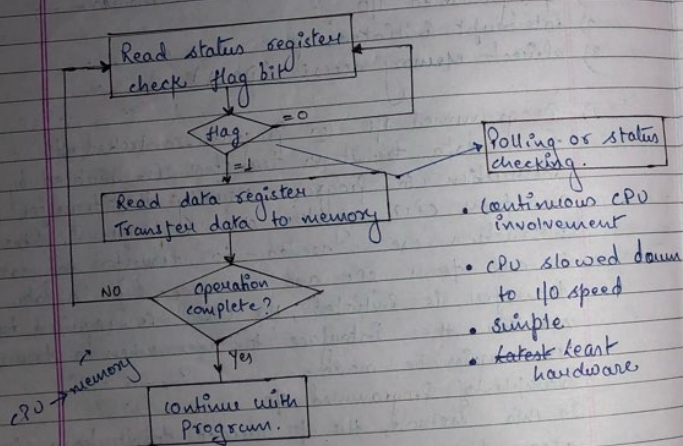 Read status register
check flag bit
flag.
=0
=1
Polling or status
checking.
Read data register
Transfer data to memory
• Continuous CPU
involvement
• CPU slowed down
to I/O speed
• simple
• Latest Least
hardware
operation
complete?
NO
Yes
CPU → memory
continue with
Program.